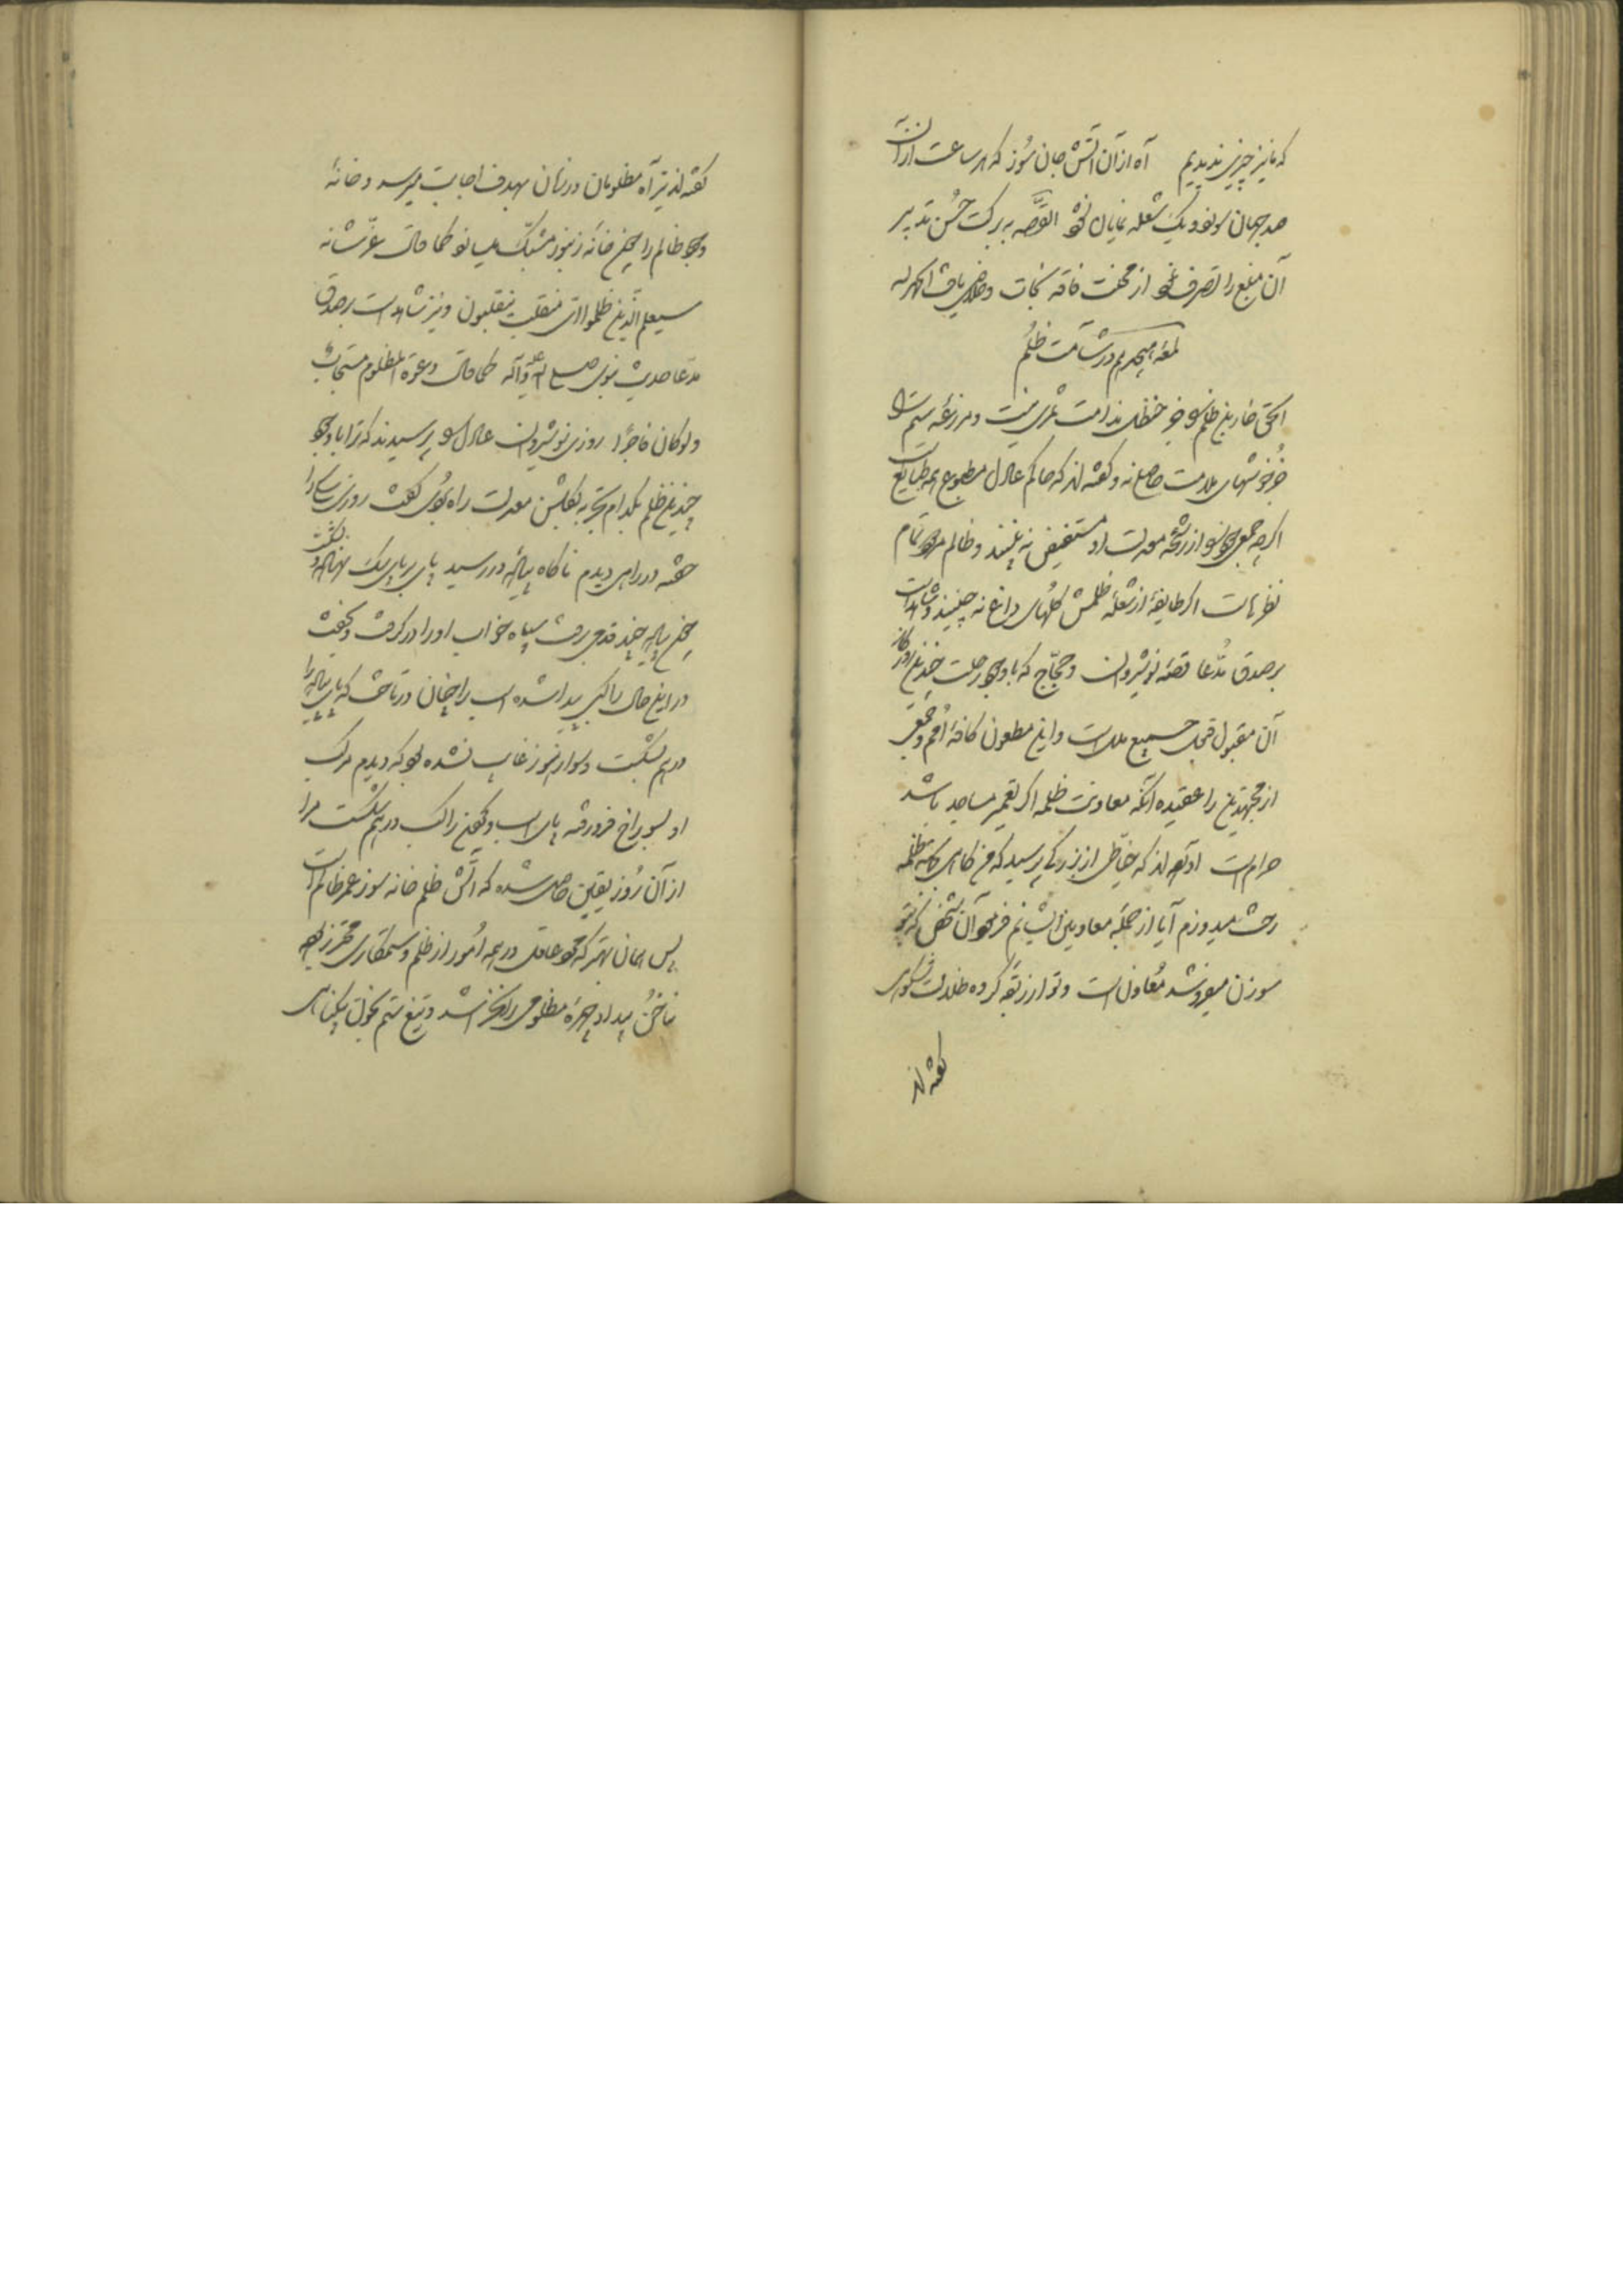 که ما نیز چیزی ندیدیم آه از آن آتش جان سوز که هر ساعت از آن
صد جهان سوزد و یک شعله نمایان نشود القصّه به برکت حُسن تدبیر
آن مبلغ را تصرف نمود از محنت فاقه نجات و خلاصی یافت الحمد لله
لمعه هیجدهم در شآمت ظُلم
الحق خاربن ظلم را جز حنظل ندامت ثمری نیست و مزرعه ستم را
جز خوشهای ملامت حاصل نه و گفته‌اند که حاکم عادل مطبوع همه طبایع است
اگرچه جمعی از رشحه معدلت او مستفیض نه باشند و ظالم مردود تمام
نظرهاست اگر طایفهٔ از شعلهٔ ظلمش گلهای داغ نه چینند و شاهد است
بر صدق مُدّعا قصّه نوشیروان و حجّاج که با وجود رحلت چندین روزگار
آن مقبول قبول جمیع ملل است و این مطعون کافهٔ اُمم و جمعی
از مجتهدین را عقیده آنکه معاونت ظلمه اگر بتعمیر مساجد باشد
حرام است آورده‌اند که خیّاطی از بزرگی پرسید که من گاهی جامه ظلمه
رخت میدوزم آیا از جمله معاونین ایشانم فرمود آن شخص که بتو
سوزن میفروشد مُعاون است و تو از زمره
گفته‌اند
گفته‌اند تیر آه مظلومان در زمان بهدف اجابت میرسد و خانهٔ
وجود ظالم را چون خانه زنبور مشبّک میسازد کما قال عزّ شانه
سیعلم الّذین ظلموا ایّ منقلب ینقلبون و نیز شاهد است بر صدق
مدّعا حدیث نبوی صلی الله علیه و آله کما قال دعوة المظلوم مستجابة
ولو کان فاجرًا روزی نوشیروان عادل را پرسیدند که ترا با وجود
چندین ظلم کدام تجربه بگلشن معدلت راه نمود گفت روزی
در راهی دیدم ناگاه پیاده در رسید پای بر پای سگ نهاده بشکست
چون پیاده چند قدمی برفت سپاه خواب او را در گرفت و بخفت
در این حال راکبی پیدا شده اسب را چنان در تاخت که پای پیاده را
در هم شکست و سوار هنوز غایب نشده بود که دیدم مرکب
او بسوراخ فرو رفته پای اسب و گردن راکب در هم شکست مرا
از آن رُوز یقین حاصل شده که آتش ظلم خانه سوز عمر ظالم است
پس همان بهتر که مرد عاقل در همه اُمور از ظلم و ستمکاری محترز بوده
ناخُن بیداد چهرهٔ مظلومی را نخراشد و تیغ ستم بخون بیکناهی